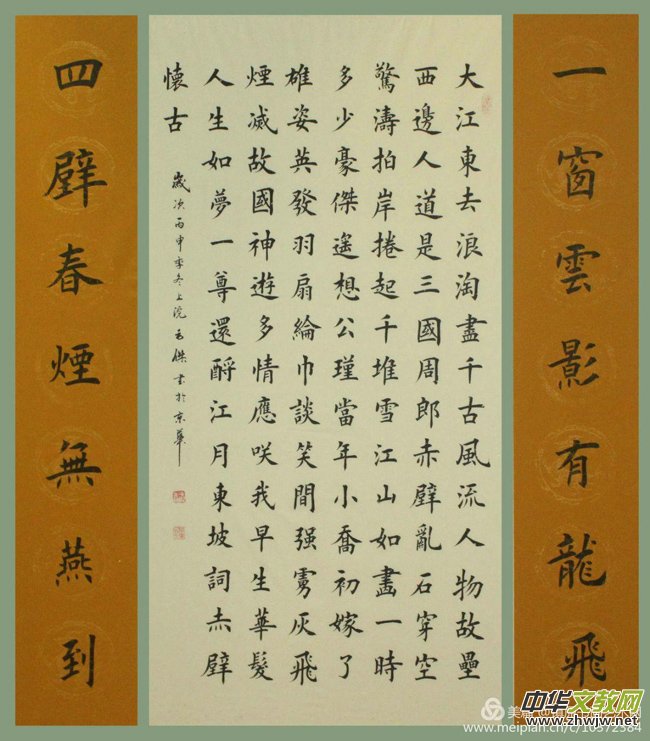 一窗雲影有龍飛
大江東去浪淘盡千古風流人物故壘
西邊人道是三國周郎赤壁亂石穿空
驚濤拍岸捲起千堆雪江山如畫一時
多少豪傑遙想公瑾當年小喬初嫁了
雄姿英發羽扇綸巾談笑間强虜灰飛
煙滅故國神遊多情應咲我早生華髮
人生如夢一尊還酹江月東坡詞赤壁
懷古
歲次丙申季冬上浣 傑書於京華
四壁春煙無燕到
美篇
中华文教网
www.zhwjw.net